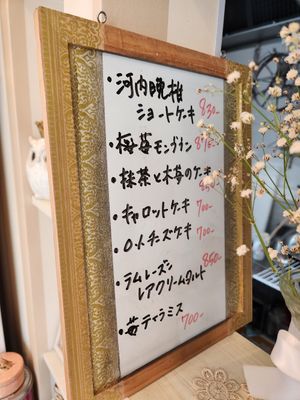 ・河内晩柑
ショートケーキ 830-
・梅苺モンブラン 870-
・抹茶と木苺のケーキ
・キャロットケーキ 700-
・N.Y.チーズケーキ 700-
・ラムレーズン
レアクリームタルト 850-
・苺ティラミス
700-